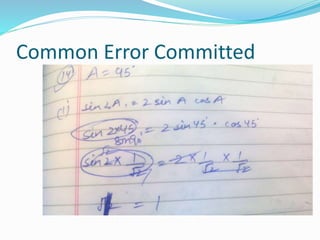 Common Error Committed
14) A = 45°
(i) sin 2A = 2 sin A cos A
sin 2×45 = 2 sin 45° · cos 45°
sin 90
sin 2 × 1/√2 = 2 × 1/√2 × 1/√2
= 1